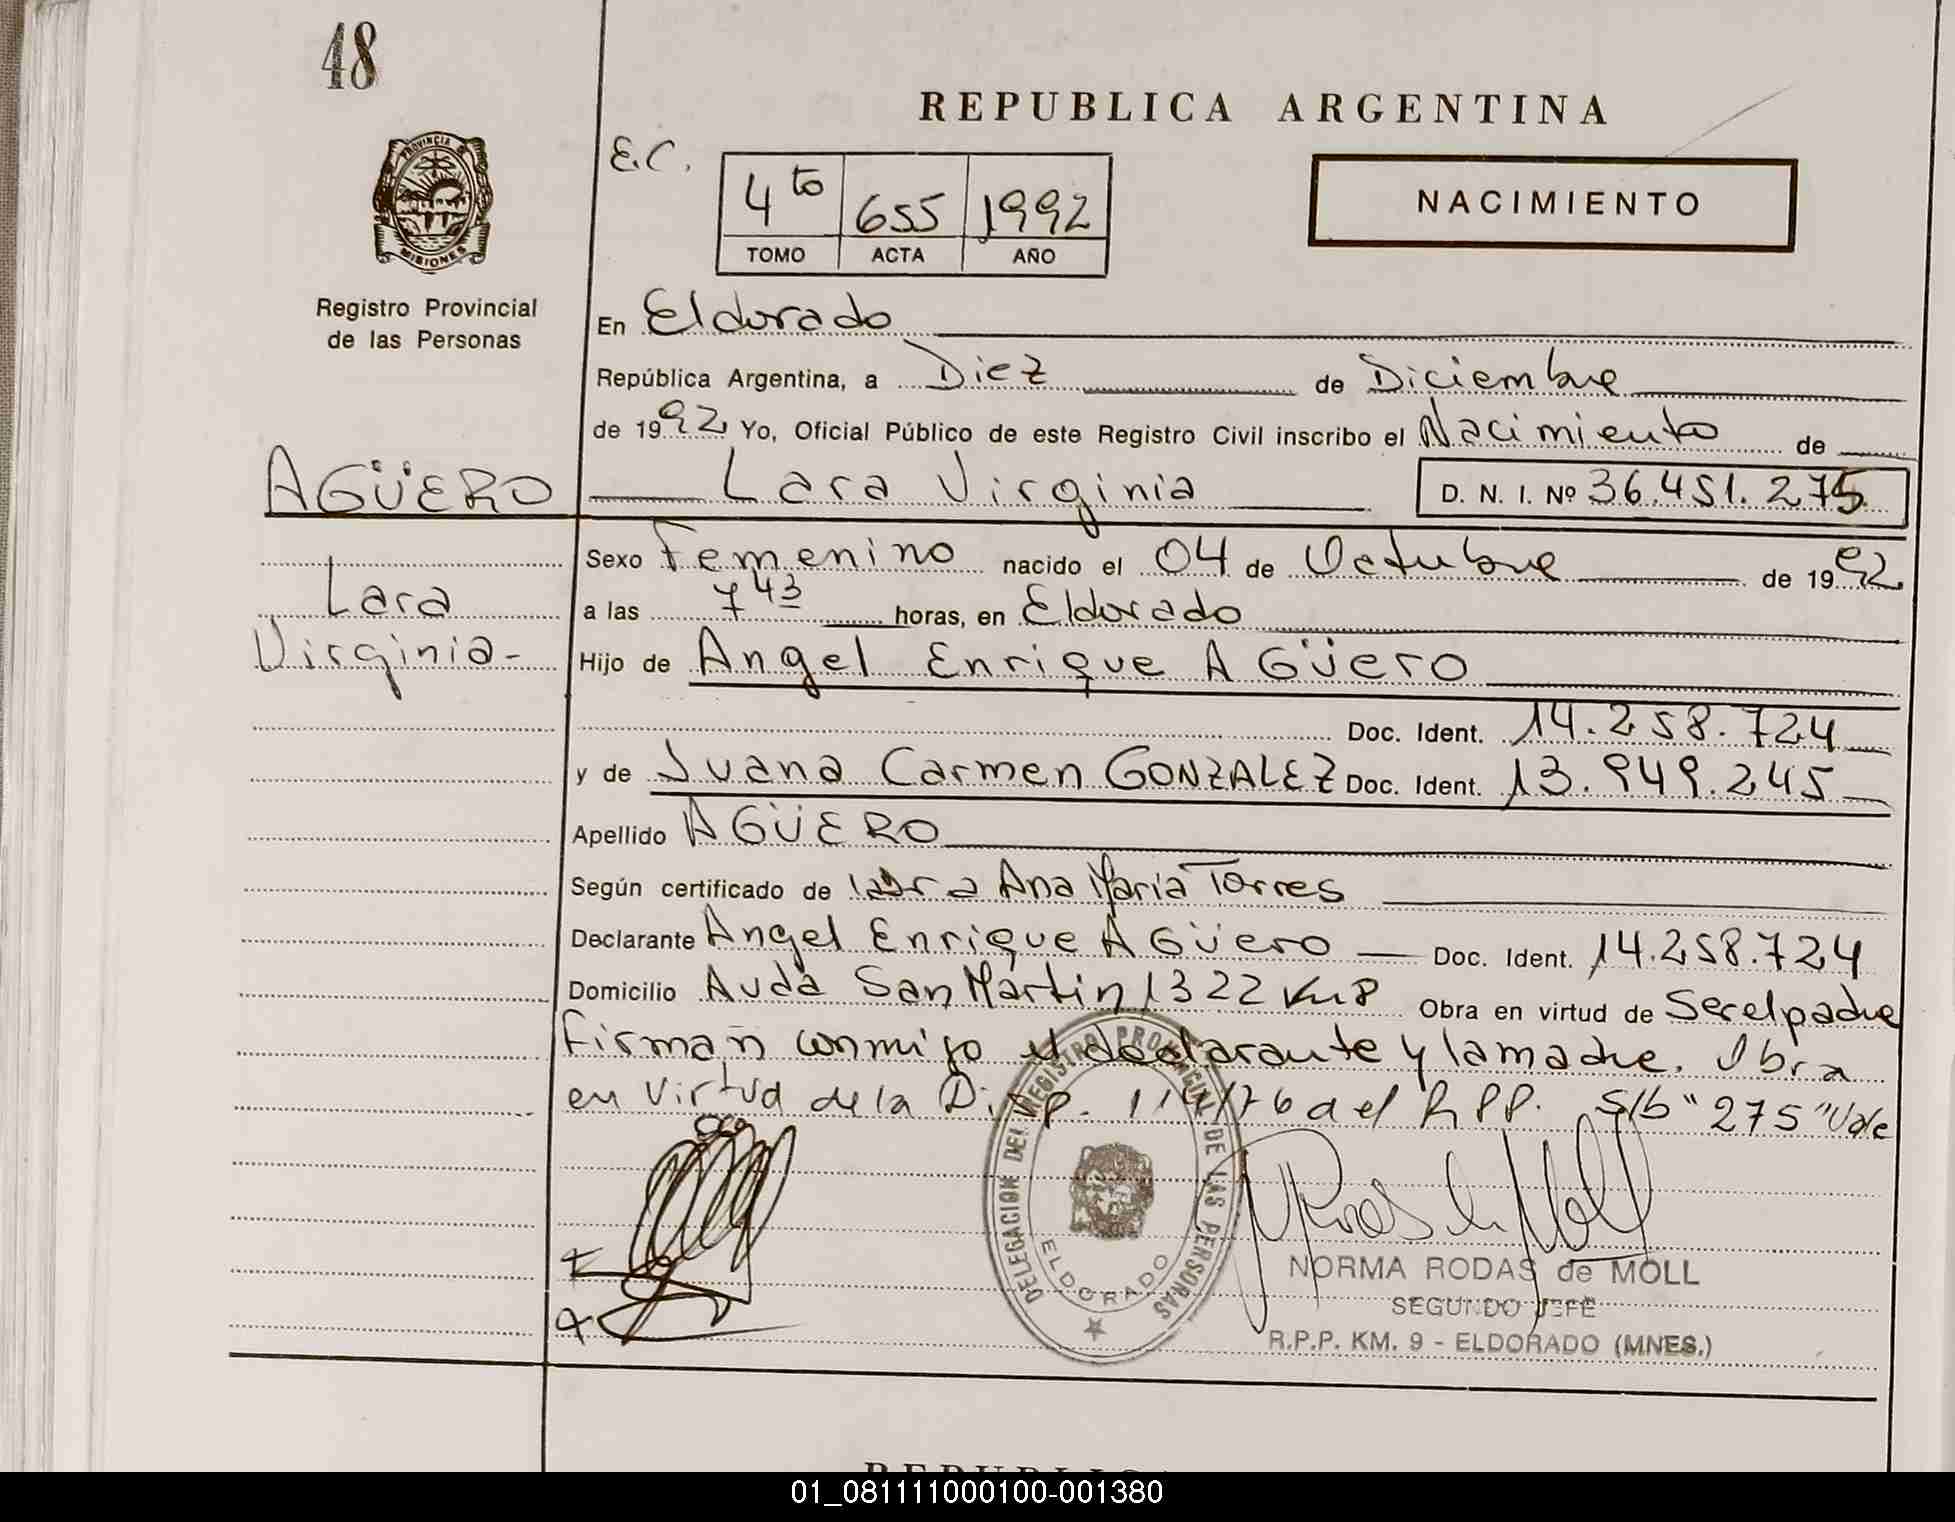 48
REPUBLICA ARGENTINA
PROVINCIA D
MISIONES
E.C.
4to 655 1992
TOMO ACTA AÑO
NACIMIENTO
Registro Provincial
de las Personas
En Eldorado
República Argentina, a Diez de Diciembre
de 1992 Yo, Oficial Público de este Registro Civil inscribo el Nacimiento de
AGÜERO Lara Virginia D. N. I. Nº 36.451.275
Lara
Virginia-
Sexo Femenino nacido el 04 de Octubre de 1992
a las 7 43 horas, en Eldorado
Hijo de Angel Enrique AGüero
Doc. Ident. 14.258.724
y de Juana Carmen GONZALEZ Doc. Ident. 13.949.245
Apellido AGÜERO
Según certificado de Ana María Torres
Declarante Angel Enrique AGüero Doc. Ident. 14.258.724
Domicilio Avda San Martin 1322 Km8 Obra en virtud de Ser el padre
Firman conmigo el declarante y la madre. Obra
en virtud de la Disp. 114/76 del RPP. S/b "275" Vale
DELEGACION DEL REGISTRO PROVINCIAL DE LAS PERSONAS
ELDORADO
NORMA RODAS de MOLL
SEGUNDO JEFE
R.P.P. KM. 9 - ELDORADO (MNES.)
01_081111000100-001380